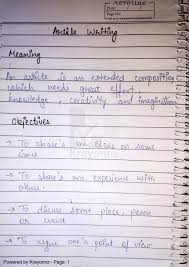 Date
Page No.
Article Writing
Meaning
An article is an extended composition
which needs great effort,
knowledge, creativity and imagination
Objectives
→ To share's one ideas on some
issue
→ To share's one experience with
others.
→ To discuss some place, person
or event
→ To argue one's point of view
Krayonnz
Powered by Krayonnz - Page: 1